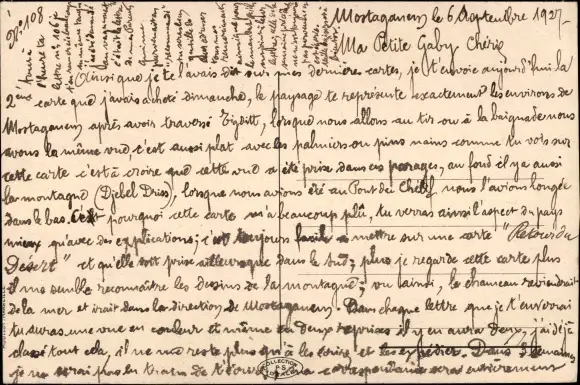 N° 108
Mostaganem le 6 Septembre 1927.
Ma Petite Gaby Chérie
Ainsi que je te l'avais dit sur mes dernières cartes, je t'envoie aujourd'hui la
2ème carte que j'avais acheté dimanche, le paysage te représente exactement les environs de
Mostaganem après avoir traversé Tigditt, lorsque nous allons au tir ou à la baignade nous
avons la même vue, c'est aussi plat avec les palmiers ou pins nains comme tu vois sur
cette carte c'est à croire que cette vue a été prise dans ces parages, au fond il y a aussi
la montagne (Djebel Diss), lorsque nous avions été au Pont du Chéliff nous l'avions longée
dans le bas. C'est pourquoi cette carte m'a beaucoup plû, tu verras ainsi l'aspect du pays
mieux qu'avec des explications; c'est toujours facile à mettre sur une carte "Retour du
Désert" et qu'elle soit prise ailleurs que dans le Sud; plus je regarde cette carte plus
il me semble reconnaître les dessins de la montagne; vu ainsi, le chameau reviendrait
de la mer et irait dans la direction de Mostaganem. Dans chaque lettre que je t'enverrai
tu auras une vue en couleur et même en deux reprises il y en aura deux, j'ai déjà
classé tout cela, il ne me reste plus qu'à les écrire et les expédier. Dans 3 semaines
je ne serai pas en train de t'écrire la correspondance sera entièrement
COLLECTION